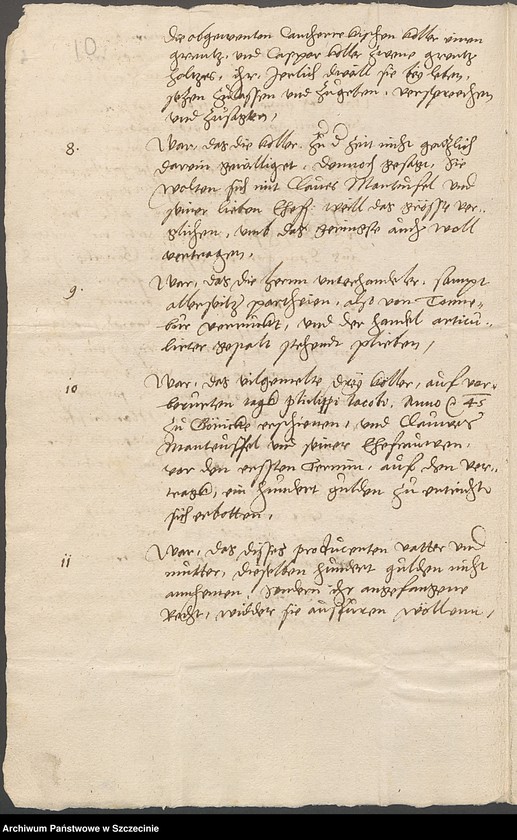 10
die obgewenten Tancherr kischen koller einen
greutz, und Caspar koller zwene greutz
holtzes, ihr Jerlich dwall sie leben,
setzen zulassen und zugeben, versprechen
und zusagten,
8. War, das die koller zu d zeit nicht gentzlich
darein gewilliget, dennoch gesagt, sie
wolten sich mit Claues Manteufel und
seiner lieben Ehef: woll das gröste ver-
glichen, umb das geringste auch woll
vertragen,
9. War, das die herrn unterhandeler, sampt
allerseitz partheien, also von
verruckt, und der handel articu-
lirter gestalt stehendt plieben,
10 War, das vilgemelte drey koller, auf vor-
berurten tagk philippi Jacobi, Anno 45
zu erschienen, und Clawes
Manteuffel und seiner Ehefrauwen,
vor den ersten Termin, auf den ver-
tragk, ein hundert gulden zu entricht
sich erbotten,
11 War, das dieses producenten vatter und
mutter, dieselben hundert gulden nicht
annhemen, sondern ihr angefangene
Recht, widder sie ausfüren wöllenn,
Archiwum Państwowe w Szczecinie